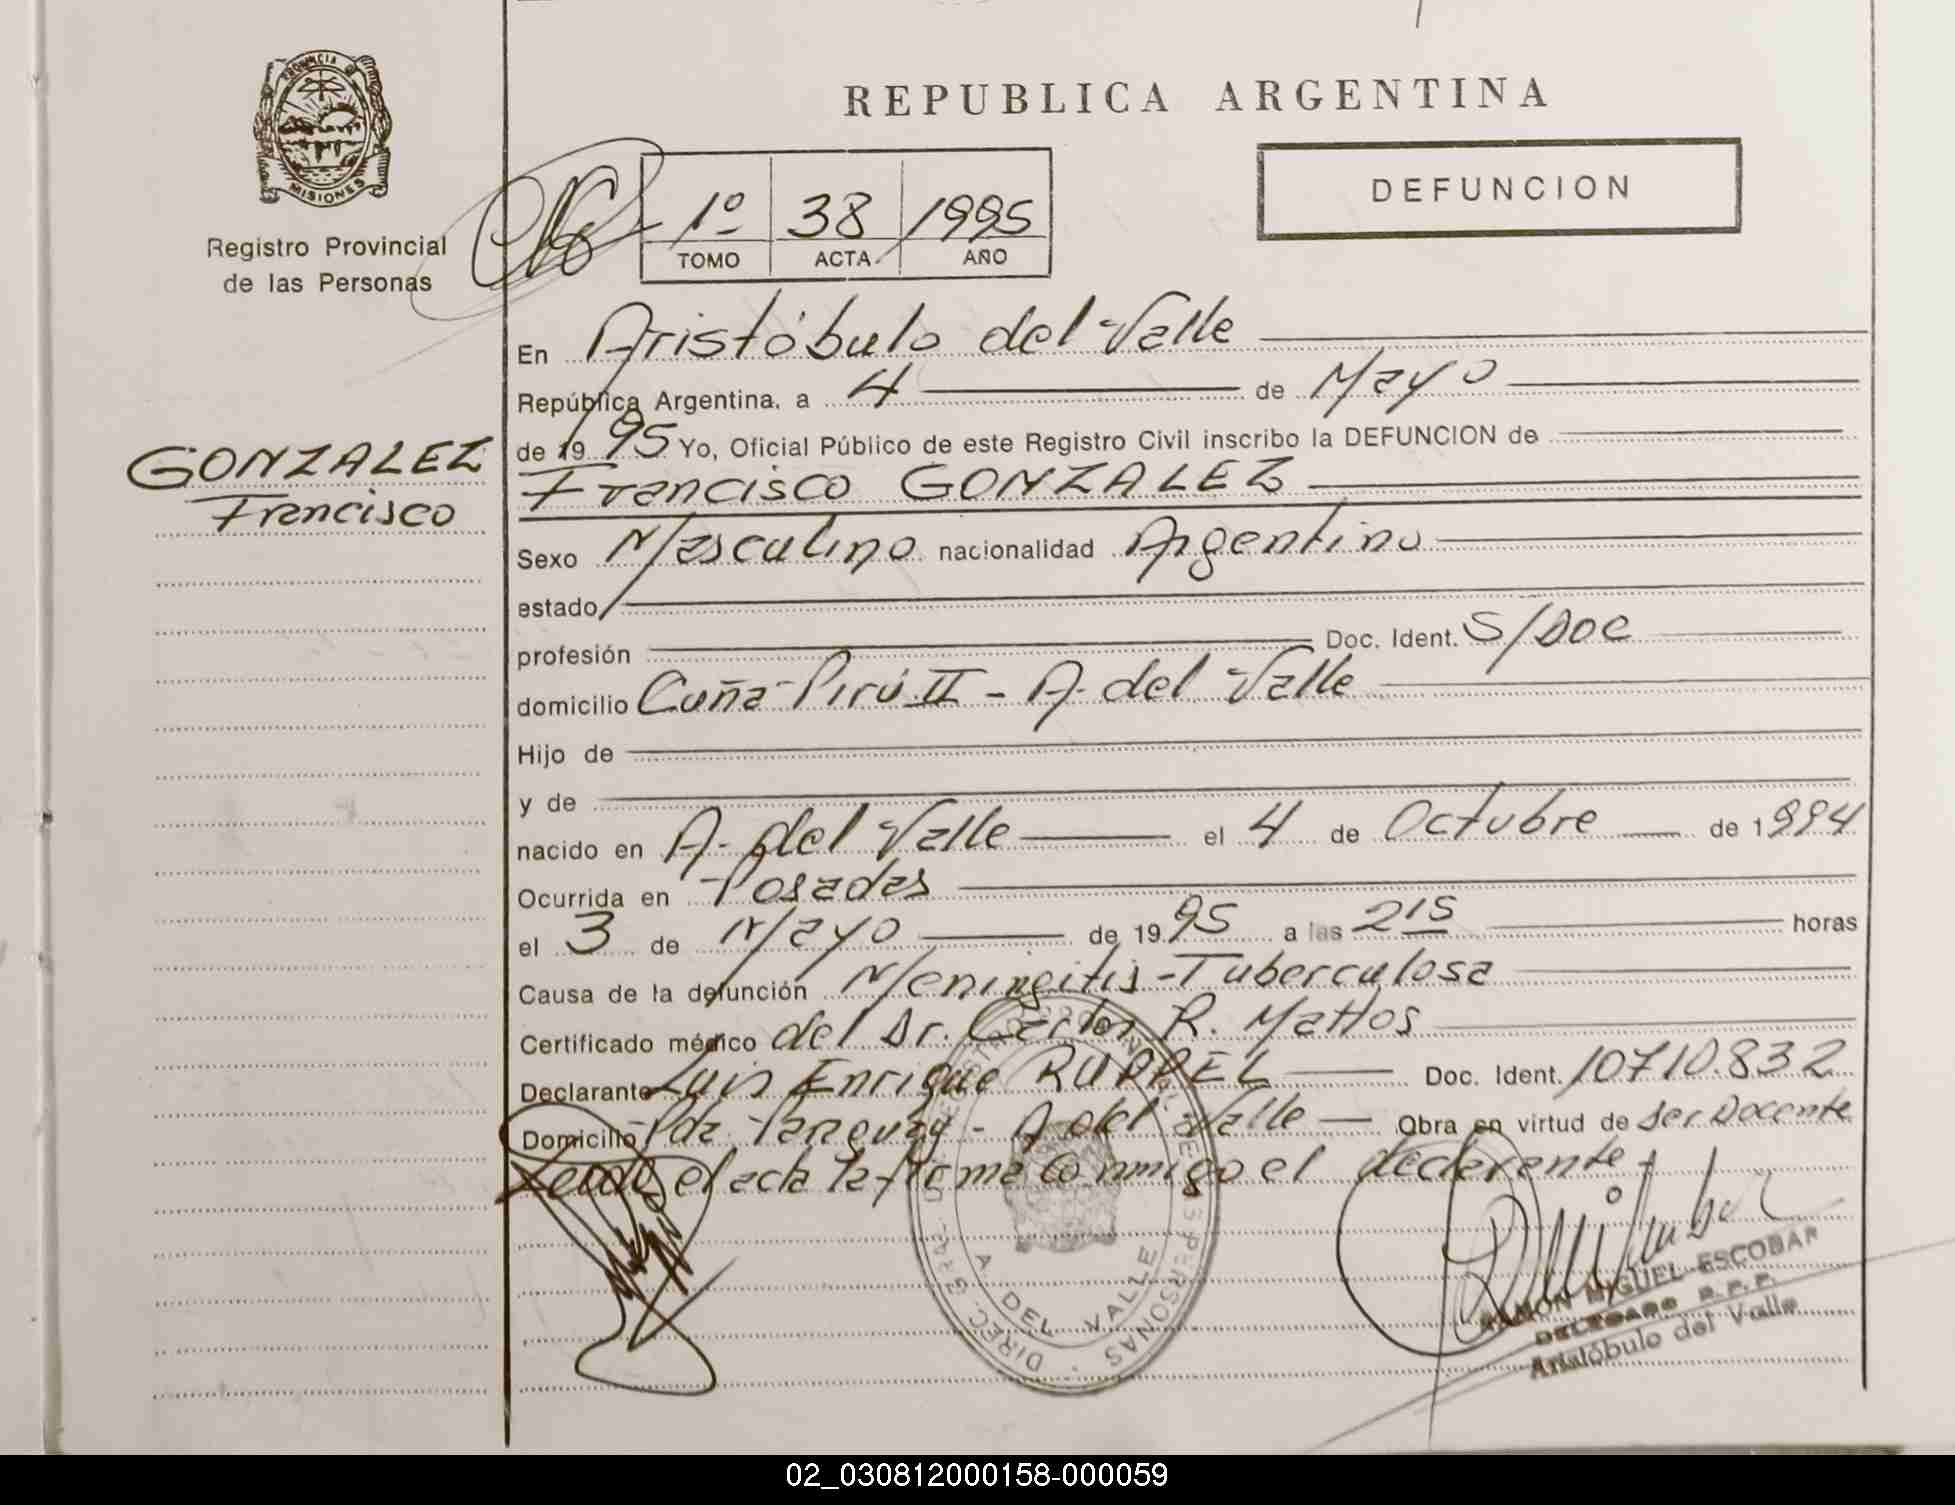 PROVINCIA D
MISIONES
Registro Provincial
de las Personas
REPUBLICA ARGENTINA
DEFUNCION
1º 38 1995
TOMO ACTA AÑO
En Aristóbulo del Valle
República Argentina, a 4 de Mayo
de 1995 Yo, Oficial Público de este Registro Civil inscribo la DEFUNCION de
GONZALEZ
Francisco
Francisco GONZALEZ
Sexo Masculino nacionalidad Argentino
estado
profesión Doc. Ident. S/Doc
domicilio Cuña-Pirú II - A. del Valle
Hijo de
y de
nacido en A. del Valle el 4 de Octubre de 1994
Ocurrida en Posadas
el 3 de Mayo de 1995 a las 2 15 horas
Causa de la defunción Meningitis-Tuberculosa
Certificado médico del Dr. Carlos R. Mattos
Declarante Luis Enrique RUPPEL Doc. Ident. 10710.832
Domicilio Pda. Paraguay - A del Valle Obra en virtud de ser Docente
Leida el acta la firma conmigo el declarante
DIREC. GRAL. DEL REGISTRO PROVINCIAL DE LAS PERSONAS
A. DEL VALLE
RAMON MIGUEL ESCOBAR
DELEGADO R.P.P.
Aristóbulo del Valle
02_030812000158-000059